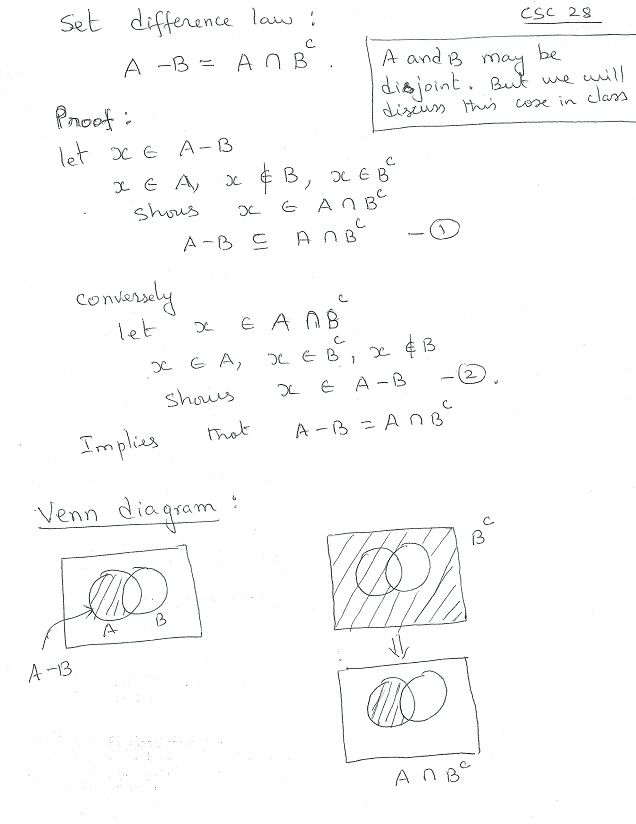 Set difference law :
CSC 28
A - B = A ∩ Bᶜ .
A and B may be
disjoint. But we will
discuss this case in class
Proof :
let x ∈ A-B
x ∈ A, x ∉ B, x ∈ Bᶜ
Shows x ∈ A ∩ Bᶜ
A-B ⊆ A ∩ Bᶜ - ①
Conversely
let x ∈ A ∩ Bᶜ
x ∈ A, x ∈ Bᶜ, x ∉ B
Shows x ∈ A-B - ② .
Implies that A-B = A ∩ Bᶜ
Venn diagram :
Bᶜ
A B
A-B
⇓
A ∩ Bᶜ